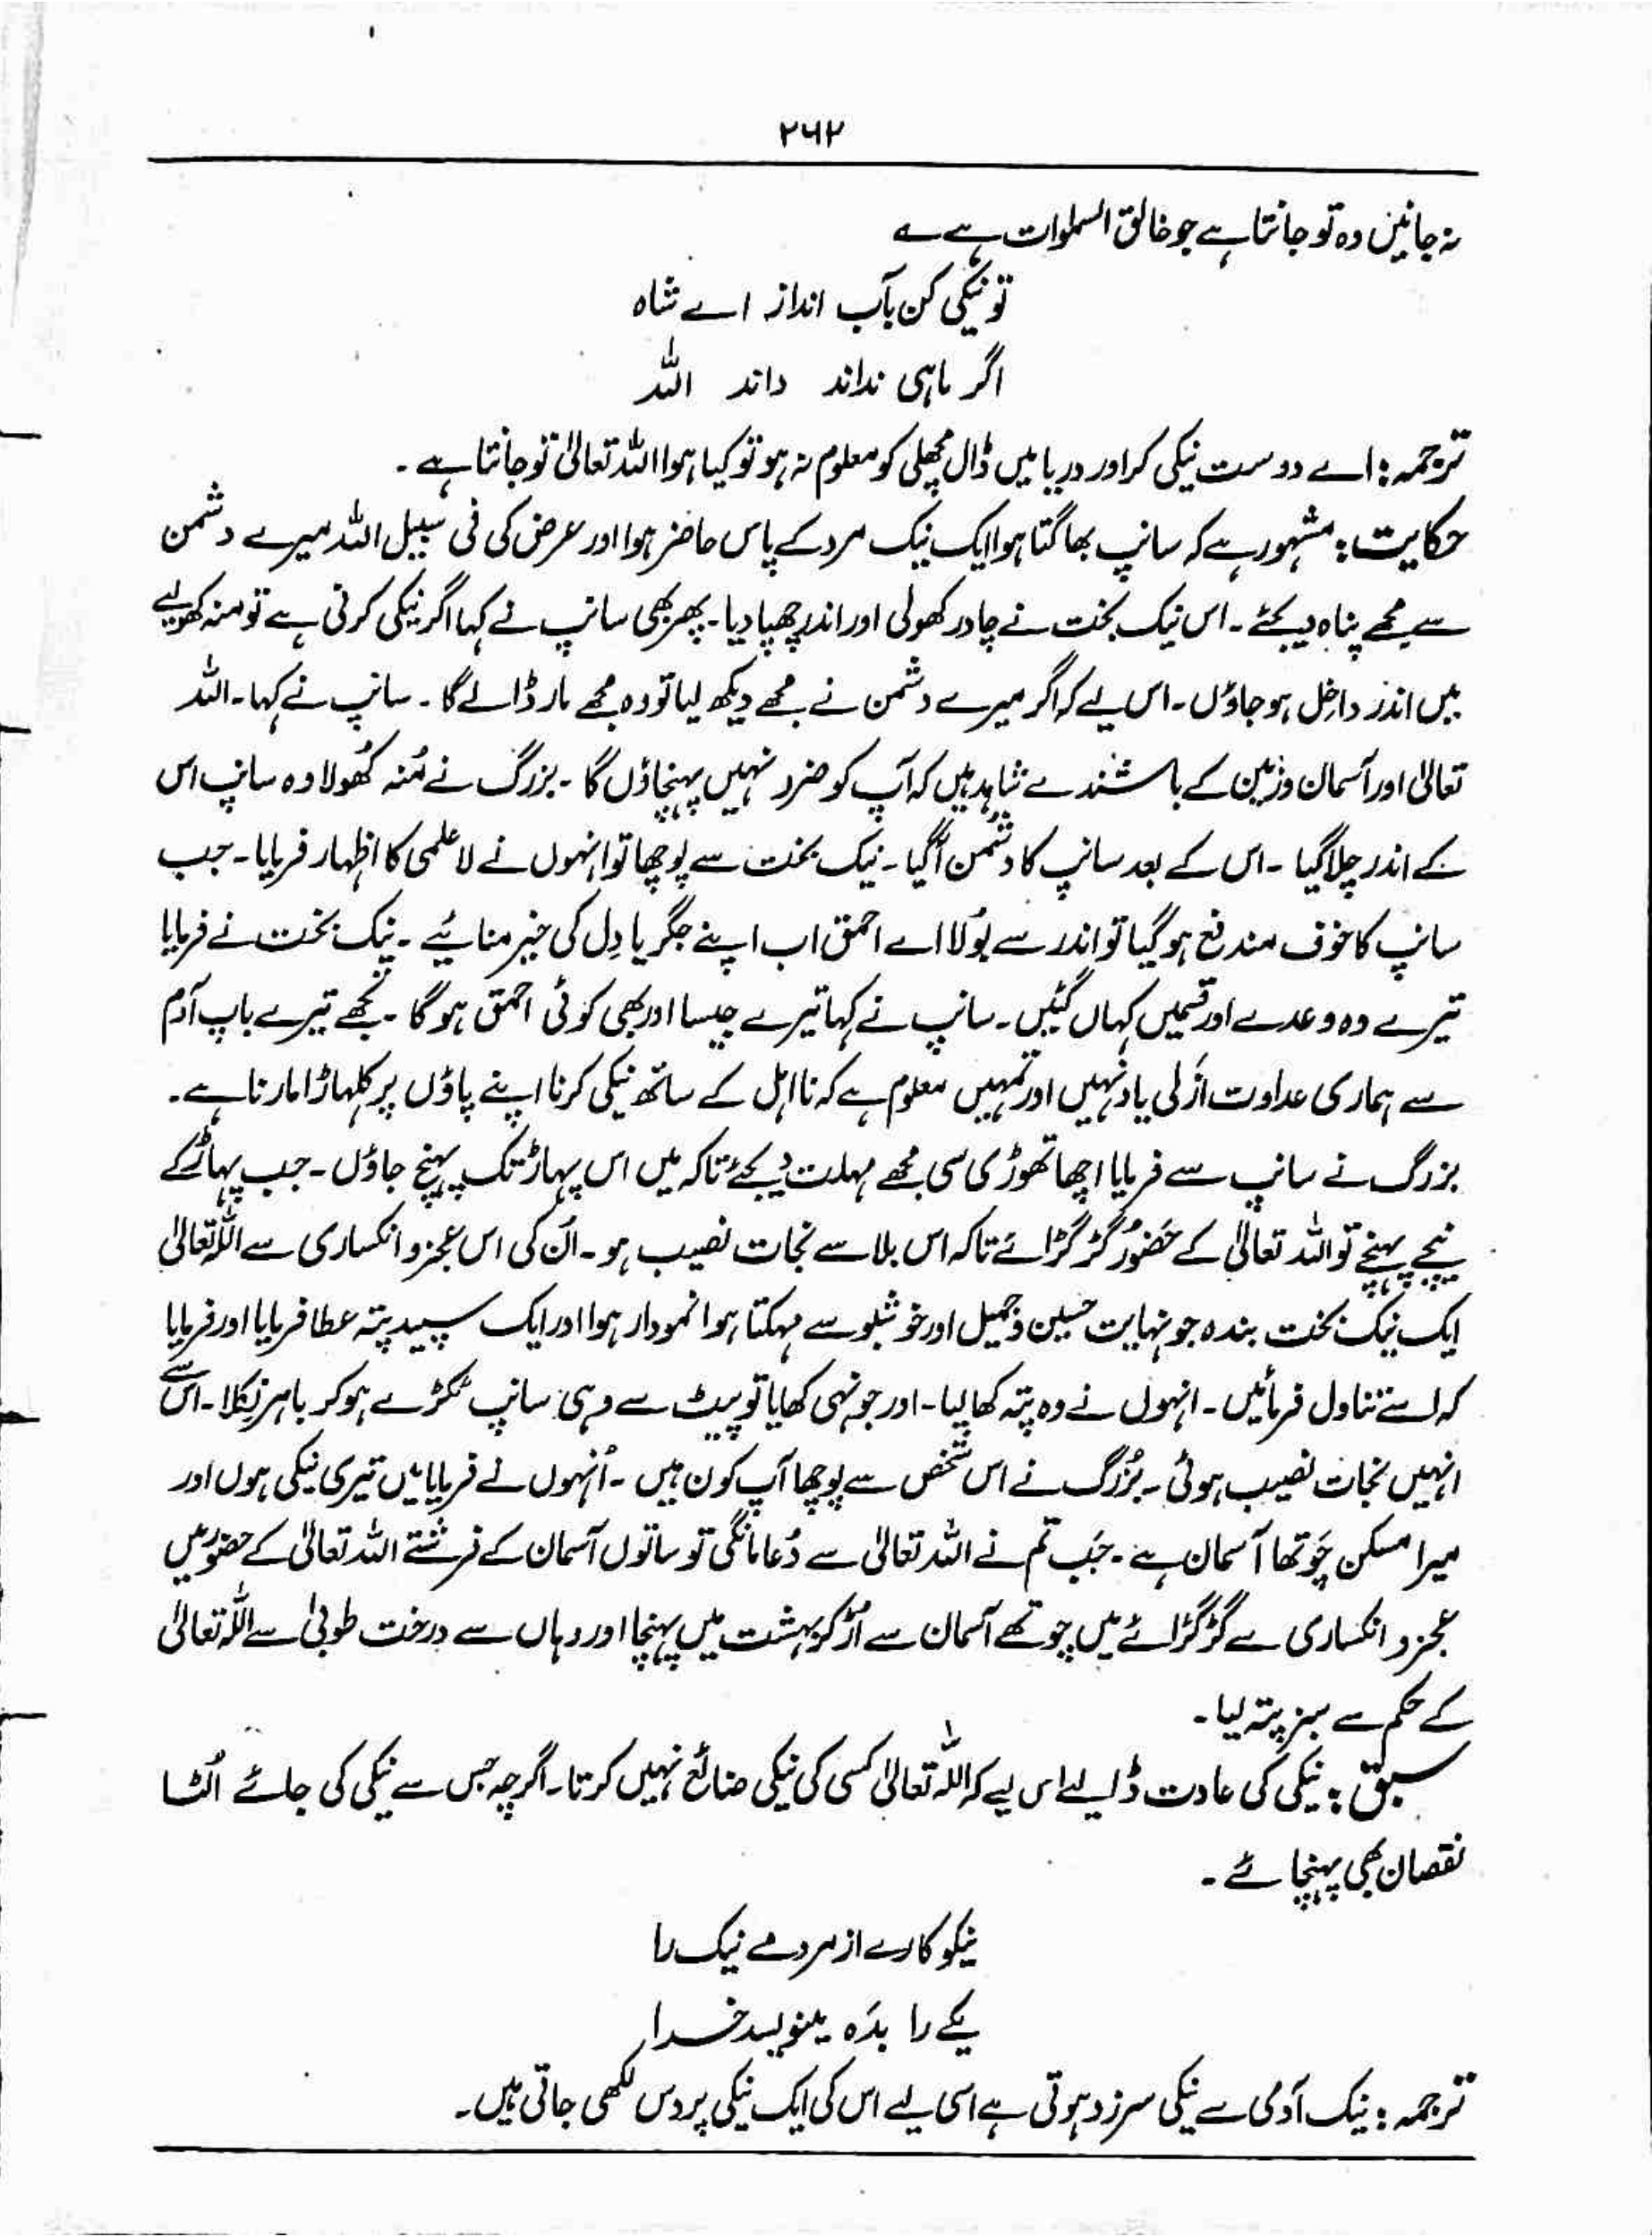 ۲۶۲
نہ جانیں وہ تو جانتا ہے جو خالق السمٰوات ہے ؎
تو نیکی کن بآب انداز اے شاہ
اگر ماہی نداند داند اللہ
ترجمہ : اے دوست نیکی کر اور دریا میں ڈال مچھلی کو معلوم نہ ہو تو کیا ہوا اللہ تعالیٰ تو جانتا ہے ۔
حکایت : مشہور ہے کہ سانپ بھاگتا ہوا ایک نیک مرد کے پاس حاضر ہوا اور عرض کی فی سبیل اللہ میرے دشمن
سے مجھے پناہ دیجئے ۔ اس نیک بخت نے چادر کھولی اور اندر چھپا دیا ۔ پھر بھی سانپ نے کہا اگر نیکی کرنی ہے تو منہ کھولیے
میں اندر داخل ہو جاؤں ۔ اس لیے کہ اگر میرے دشمن نے مجھے دیکھ لیا تو وہ مجھے مار ڈالے گا ۔ سانپ نے کہا ۔ اللہ
تعالیٰ اور آسمان و زمین کے باشندے شاہد ہیں کہ آپ کو ضرر نہیں پہنچاؤں گا ۔ بزرگ نے مُنہ کھُولا وہ سانپ اس
کے اندر چلا گیا ۔ اس کے بعد سانپ کا دشمن آگیا ۔ نیک بخت سے پوچھا تو انہوں نے لاعلمی کا اظہار فرمایا ۔ جب
سانپ کا خوف مندفع ہو گیا تو اندر سے بولا اے احمق اب اپنے جگر یا دِل کی خیر منائیے ۔ نیک بخت نے فرمایا
تیرے وہ وعدے اور قسمیں کہاں گئیں ۔ سانپ نے کہا تیرے جیسا اور بھی کوئی احمق ہو گا ۔ تجھے تیرے باپ آدم
سے ہماری عداوت ازلی یاد نہیں اور تمہیں معلوم ہے کہ نا اہل کے ساتھ نیکی کرنا اپنے پاؤں پر کلہاڑا مارنا ہے ۔
بزرگ نے سانپ سے فرمایا اچھا تھوڑی سی مجھے مہلت دیجئے تاکہ میں اس پہاڑ تک پہنچ جاؤں ۔ جب پہاڑ کے
نیچے پہنچے تو اللہ تعالیٰ کے حَضوُر گڑگڑائے تاکہ اس بلا سے نجات نصیب ہو ۔ اُن کی اس عجز و انکساری سے اللہ تعالیٰ
ایک نیک بخت بندہ جو نہایت حسین و جمیل اور خوشبو سے مہکتا ہوا نمودار ہوا اور ایک سپید پتہ عطا فرمایا اور فرمایا
کہ اسے تناول فرمائیں ۔ انہوں نے وہ پتہ کھا لیا ۔ اور جونہی کھایا تو پیٹ سے وہی سانپ ٹکڑے ہو کر باہر نِکلا ۔ اس سے
انہیں نجات نصیب ہوئی ۔ بزُرگ نے اس شخص سے پوچھا آپ کون ہیں ۔ اُنہوں نے فرمایا میں تیری نیکی ہوں اور
میرا مسکن چَوتھا آسمان ہے ۔ جَب تم نے اللہ تعالیٰ سے دُعا مانگی تو ساتوں آسمان کے فرشتے اللہ تعالیٰ کے حضور میں
عجز و انکساری سے گڑگڑائے میں چوتھے آسمان سے اُڑ کر بہشت میں پہنچا اور وہاں سے درخت طوبیٰ سے اللہ تعالیٰ
کے حکم سے سبز پتہ لیا ۔
سبق : نیکی کی عادت ڈالیے اس لیے کہ اللہ تعالیٰ کسی کی نیکی ضائع نہیں کرتا ۔ اگرچہ جس سے نیکی کی جائے اُلٹا
نقصان بھی پہنچائے ۔
نیکو کارے از مردمے نیک را
یکے را بدَہ مینویسد خدا
ترجمہ : نیک آدمی سے نیکی سرزد ہوتی ہے اسی لیے اس کی ایک نیکی پر دس لکھی جاتی ہیں ۔